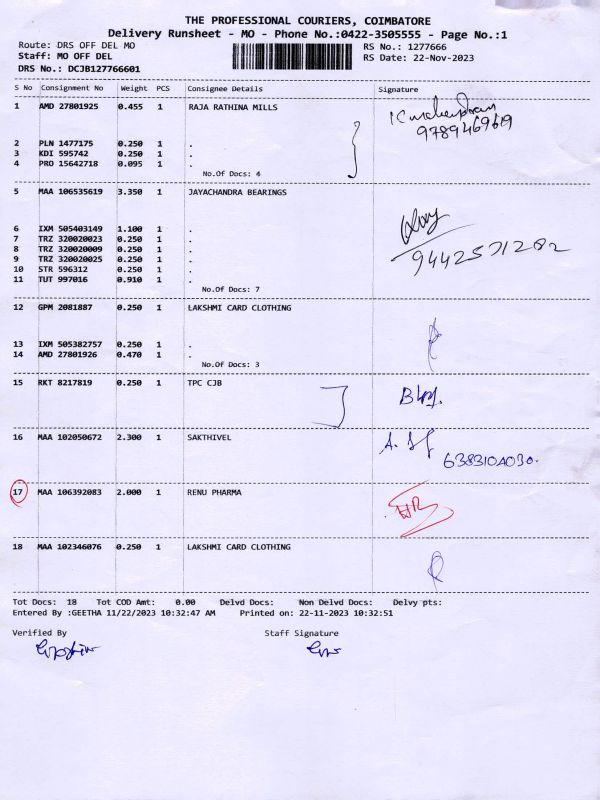 THE PROFESSIONAL COURIERS, COIMBATORE
Delivery Runsheet - MO - Phone No.:0422-3505555 - Page No.:1
Route: DRS OFF DEL MO RS No.: 1277666
Staff: MO OFF DEL RS Date: 22-Nov-2023
DRS No.: DCJB127766601
S No Consignment No Weight PCS Consignee Details Signature
1 AMD 27801925 0.455 1 RAJA RATHINA MILLS
9789469619
2 PLN 1477175 0.250 1 .
3 KDI 595742 0.250 1 .
4 PRO 15642718 0.095 1 .
No.Of Docs: 4
5 MAA 106535619 3.350 1 JAYACHANDRA BEARINGS
6 IXM 505403149 1.100 1 .
7 TRZ 320020023 0.250 1 .
8 TRZ 320020009 0.250 1 .
9 TRZ 320020025 0.250 1 .
10 STR 596312 0.250 1 .
11 TUT 997016 0.910 1 .
No.Of Docs: 7
12 GPM 2081887 0.250 1 LAKSHMI CARD CLOTHING
13 IXM 505382757 0.250 1 .
14 AMD 27801926 0.470 1 .
No.Of Docs: 3
15 RKT 8217819 0.250 1 TPC CJB
16 MAA 102050672 2.300 1 SAKTHIVEL
17 MAA 106392083 2.000 1 RENU PHARMA
18 MAA 102346076 0.250 1 LAKSHMI CARD CLOTHING
Tot Docs: 18 Tot COD Amt: 0.00 Delvd Docs: Non Delvd Docs: Delvy pts:
Entered By :GEETHA 11/22/2023 10:32:47 AM Printed on: 22-11-2023 10:32:51
Verified By Staff Signature